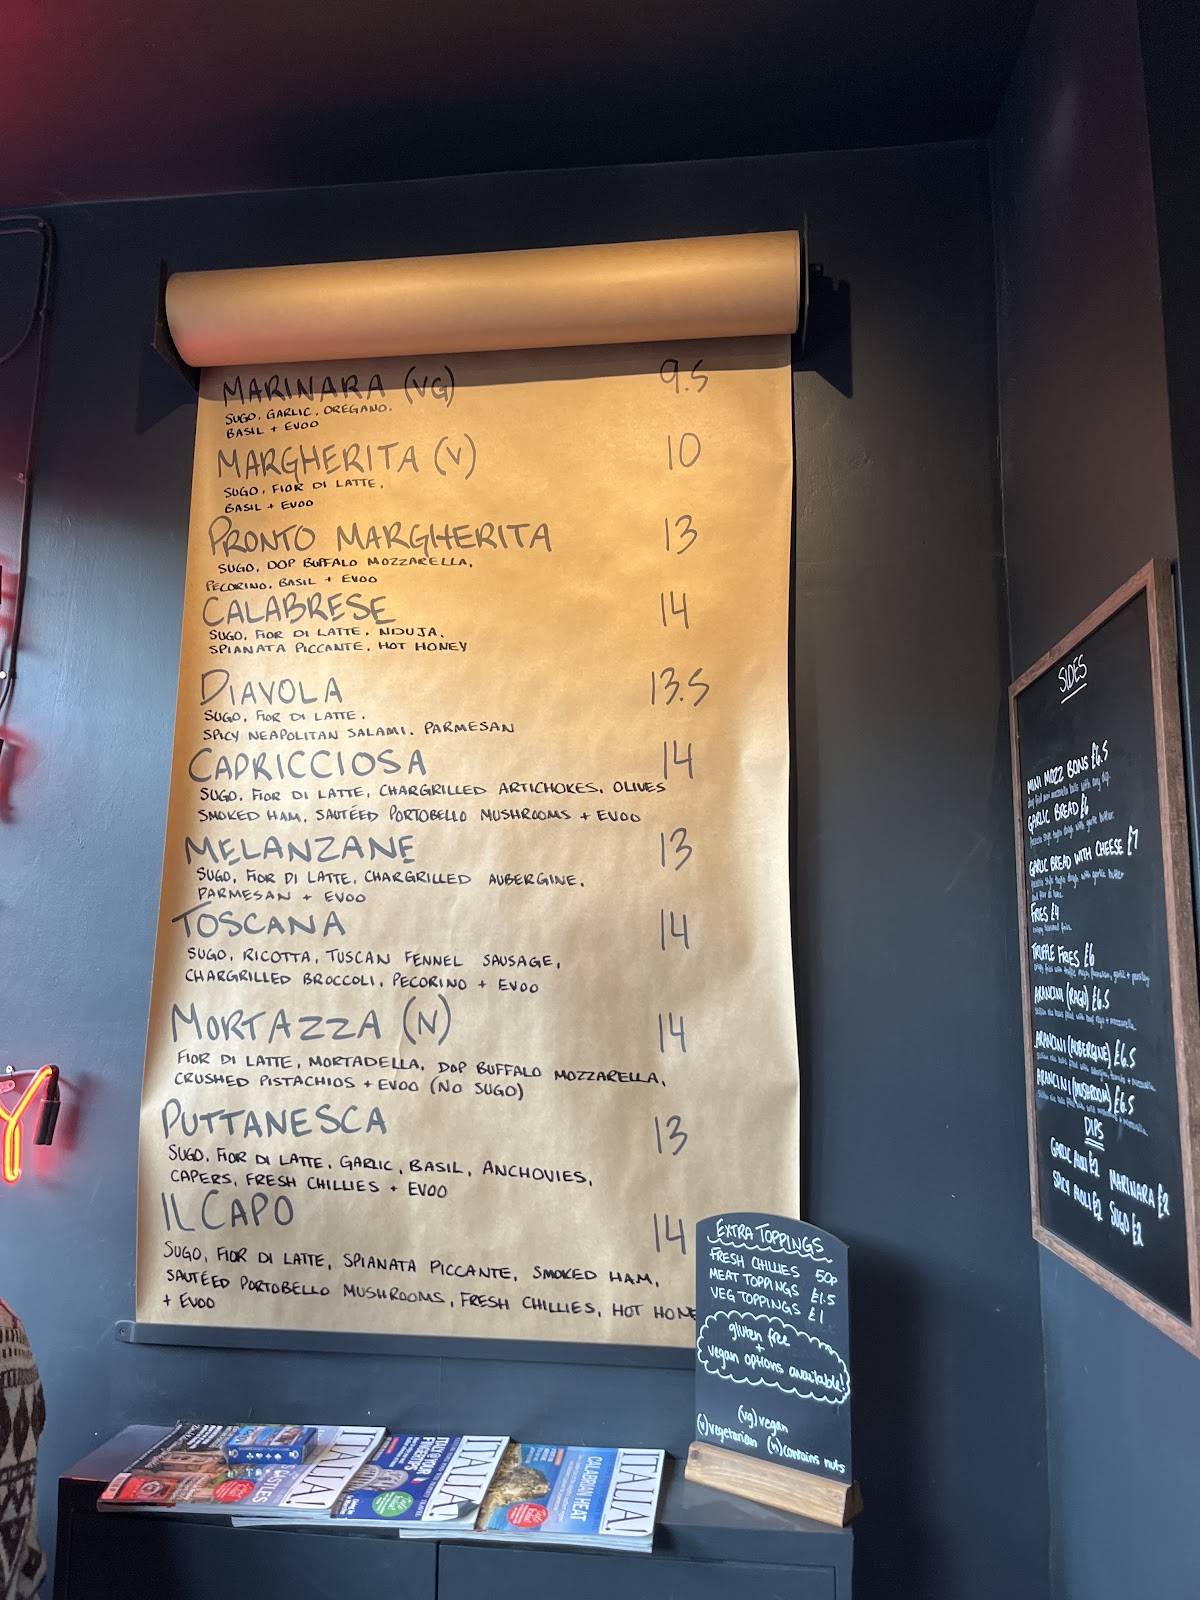 MARINARA (VG) 9.5
SUGO, GARLIC, OREGANO,
BASIL + EVOO
MARGHERITA (V) 10
SUGO, FIOR DI LATTE,
BASIL + EVOO
PRONTO MARGHERITA 13
SUGO, DOP BUFFALO MOZZARELLA,
PECORINO, BASIL + EVOO
CALABRESE 14
SUGO, FIOR DI LATTE, NDUJA,
SPIANATA PICCANTE, HOT HONEY
DIAVOLA 13.5
SUGO, FIOR DI LATTE,
SPICY NEAPOLITAN SALAMI, PARMESAN
CAPRICCIOSA 14
SUGO, FIOR DI LATTE, CHARGRILLED ARTICHOKES, OLIVES
SMOKED HAM, SAUTÉED PORTOBELLO MUSHROOMS + EVOO
MELANZANE 13
SUGO, FIOR DI LATTE, CHARGRILLED AUBERGINE,
PARMESAN + EVOO
TOSCANA 14
SUGO, RICOTTA, TUSCAN FENNEL SAUSAGE,
CHARGRILLED BROCCOLI, PECORINO + EVOO
MORTAZZA (N) 14
FIOR DI LATTE, MORTADELLA, DOP BUFFALO MOZZARELLA,
CRUSHED PISTACHIOS + EVOO (NO SUGO)
PUTTANESCA 13
SUGO, FIOR DI LATTE, GARLIC, BASIL, ANCHOVIES,
CAPERS, FRESH CHILLIES + EVOO
IL CAPO 14
SUGO, FIOR DI LATTE, SPIANATA PICCANTE, SMOKED HAM,
SAUTÉED PORTOBELLO MUSHROOMS, FRESH CHILLIES, HOT HONE
+ EVOO
EXTRA TOPPINGS
FRESH CHILLIES 50p
MEAT TOPPINGS £1.5
VEG TOPPINGS £1
gluten free
+
vegan options available!
(vg) vegan
(v) vegetarian (n) contains nuts
SIDES
MINI MOZZ BONS £6.5
GARLIC BREAD £6
GARLIC BREAD WITH CHEESE £7
FRIES £4
TRUFFLE FRIES £6
ARANCINI (RAGU) £6.5
ARANCINI (AUBERGINE) £6.5
ARANCINI (MUSHROOM) £6.5
DIPS
GARLIC AIOLI £2 MARINARA £2
SPICY AIOLI £2 SUGO £2
ITALIA!
CASTLES
ITALIA!
ITALY @ YOUR
FINGERTIPS
ITALIA!
CALABRIAN HEAT
Y